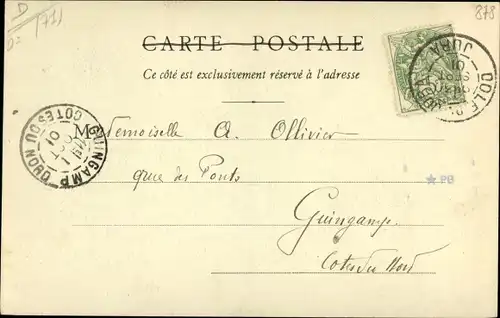 D
D=
(71)
878
CARTE POSTALE
Ce côté est exclusivement réservé à l'adresse
DOLE
JURA
01
GUINGAMP
COTES DU NORD
01
Mademoiselle A. Ollivier
rue des Ponts
★PB
Guingamp
Cotes du Nord